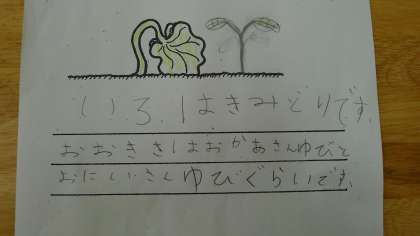 いろはきみどりです。
おおきさはおかあさんゆびと
おにいさんゆびぐらいです。